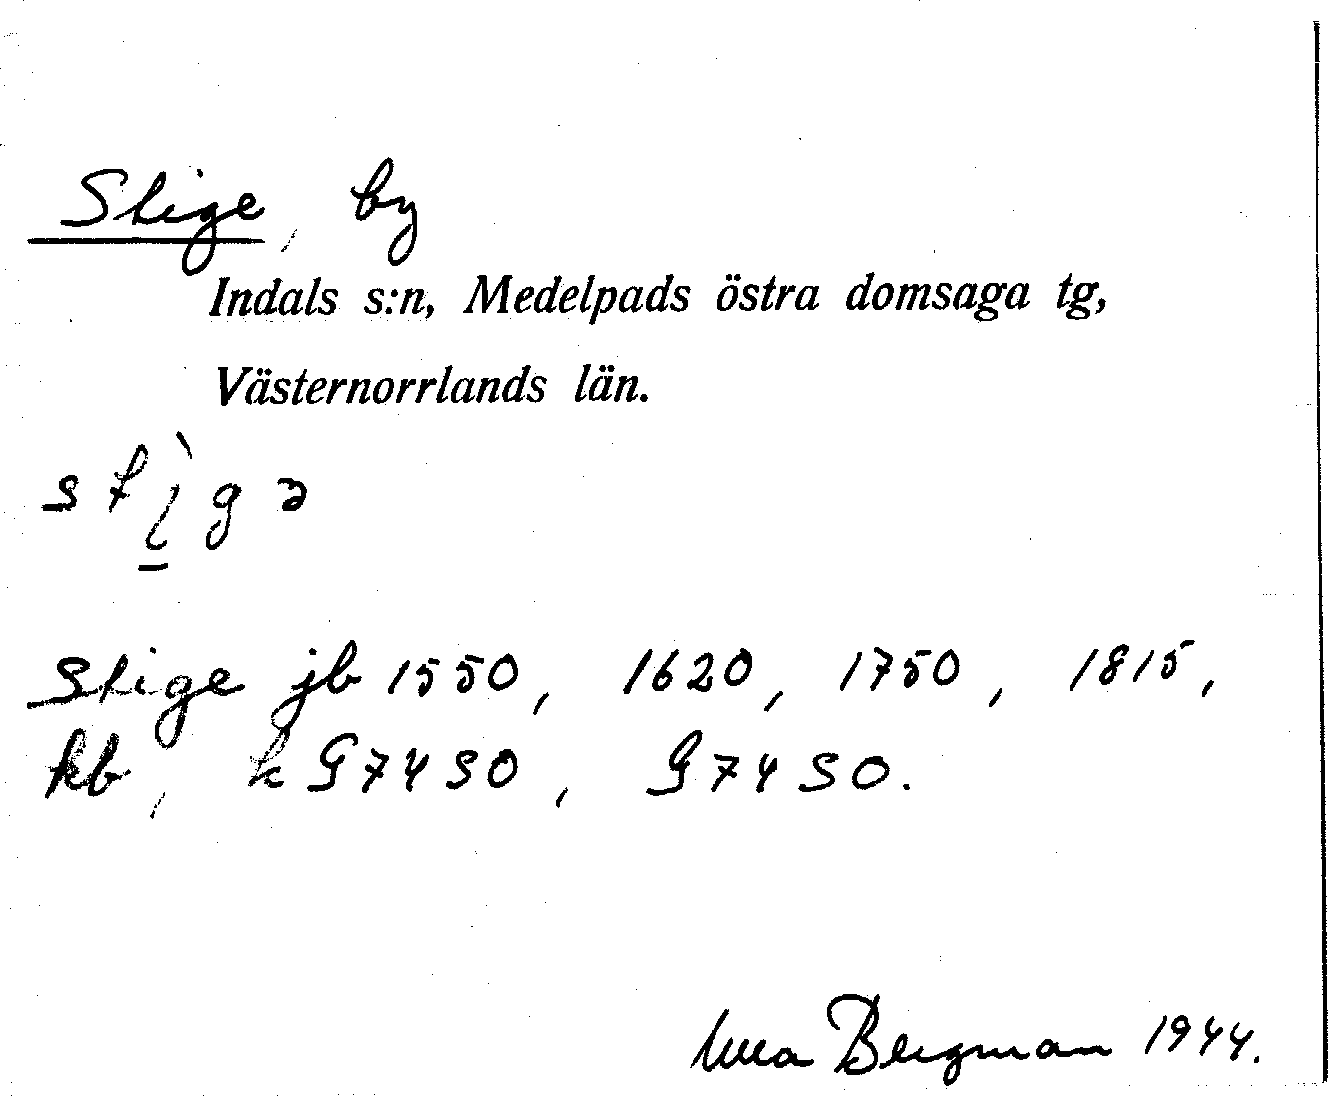 Stige, by
Indals s:n, Medelpads östra domsaga tg,
Västernorrlands län.
stìgə
Stige jb 1550, 1620, 1750, 1815,
kb, k G74SO, G74SO.
Bergman 1944.